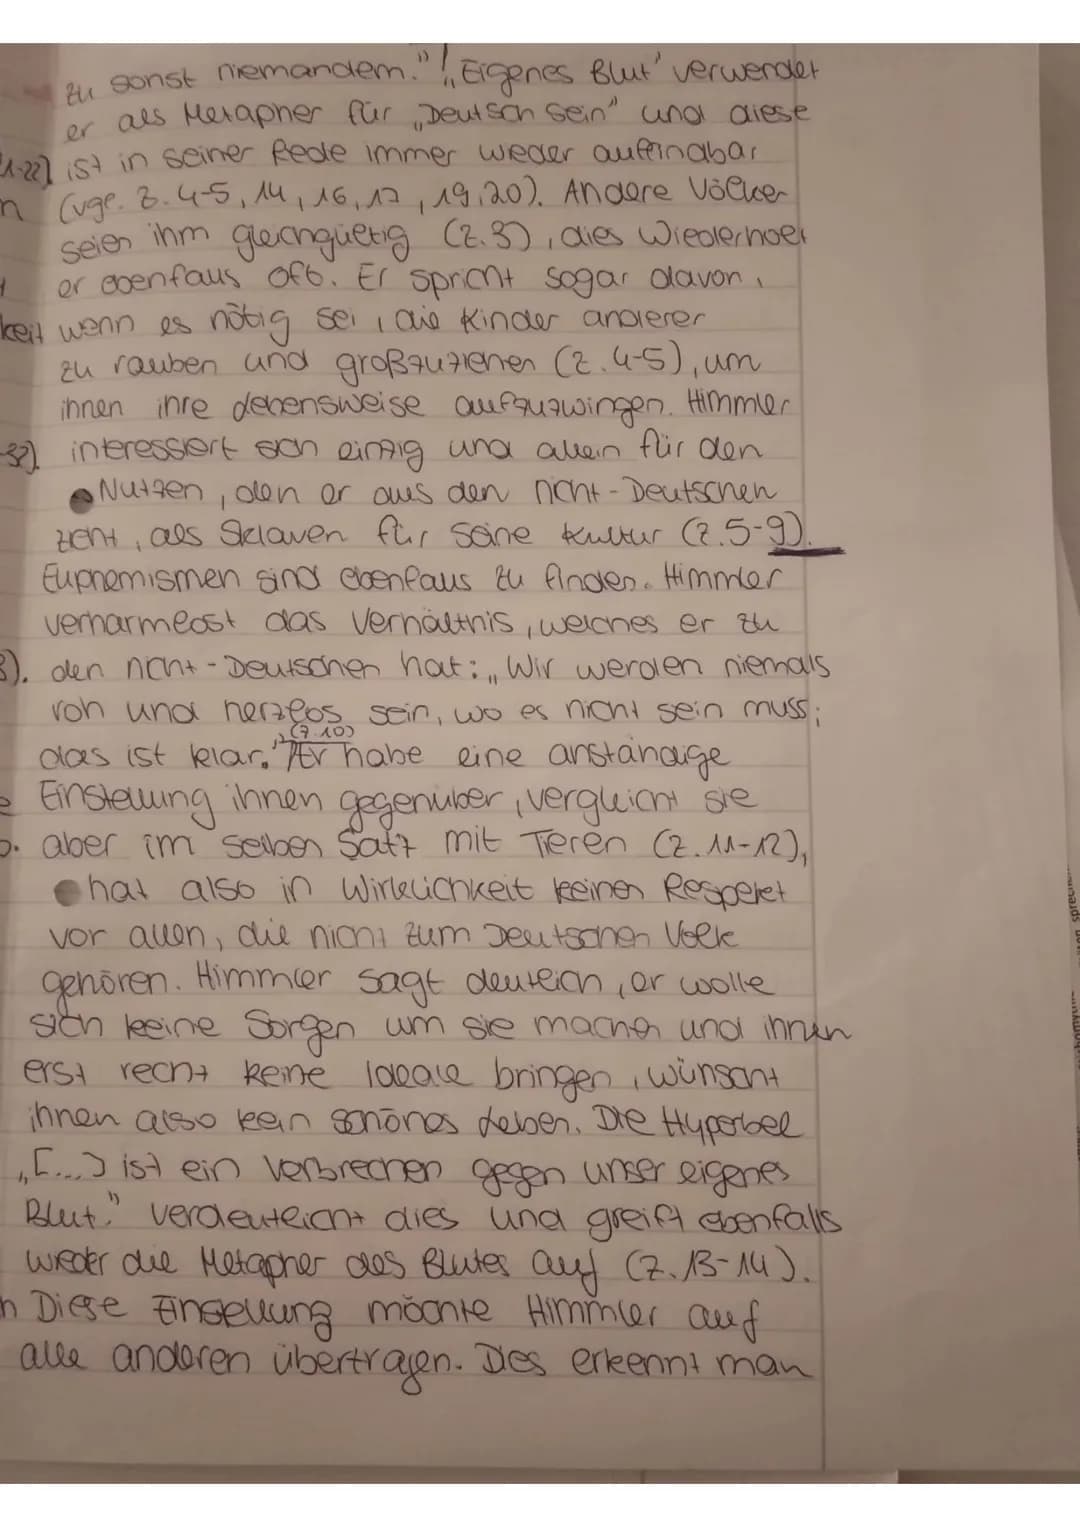 zu sonst niemandem."! „Eigenes Blut' verwendet
er als Metapher für „Deutsch sein" und diese
1-22) ist in seiner Rede immer wieder auffindbar
n (vgl. Z. 4-5, 14, 16, 17, 19, 20). Andere Völker
seien ihm gleichgültig (Z.3), dies wiederholt
er ebenfalls oft. Er spricht sogar davon,
keit wenn es nötig sei, die Kinder anderer
zu rauben und großzuziehen (Z.4-5), um
ihnen ihre Lebensweise aufzuzwingen. Himmler
-32). interessiert sich einzig und allein für den
Nutzen, den er aus den nicht-Deutschen
zieht, als Sklaven für seine Kultur (Z.5-9).
Euphemismen sind ebenfalls zu finden. Himmler
verharmlost das Verhältnis, welches er zu
3). den nicht-Deutschen hat: „Wir werden niemals
roh und herzlos sein, wo es nicht sein muss;
(Z.10)
das ist klar." Er habe eine anständige
e Einstellung ihnen gegenüber, vergleicht sie
aber im selben Satz mit Tieren (Z.11-12),
hat also in Wirklichkeit keinen Respekt
vor allen, die nicht zum Deutschen Volk
gehören. Himmler sagt deutlich, er wolle
sich keine Sorgen um sie machen und ihnen
erst recht keine Ideale bringen, wünscht
ihnen also kein schönes Leben. Die Hyperbel
„[...] ist ein Verbrechen gegen unser eigenes
Blut." verdeutlicht dies und greift ebenfalls
wieder die Metapher des Blutes auf (Z.13-14).
n Diese Einsellung möchte Himmler auf
alle anderen übertragen. Dies erkennt man